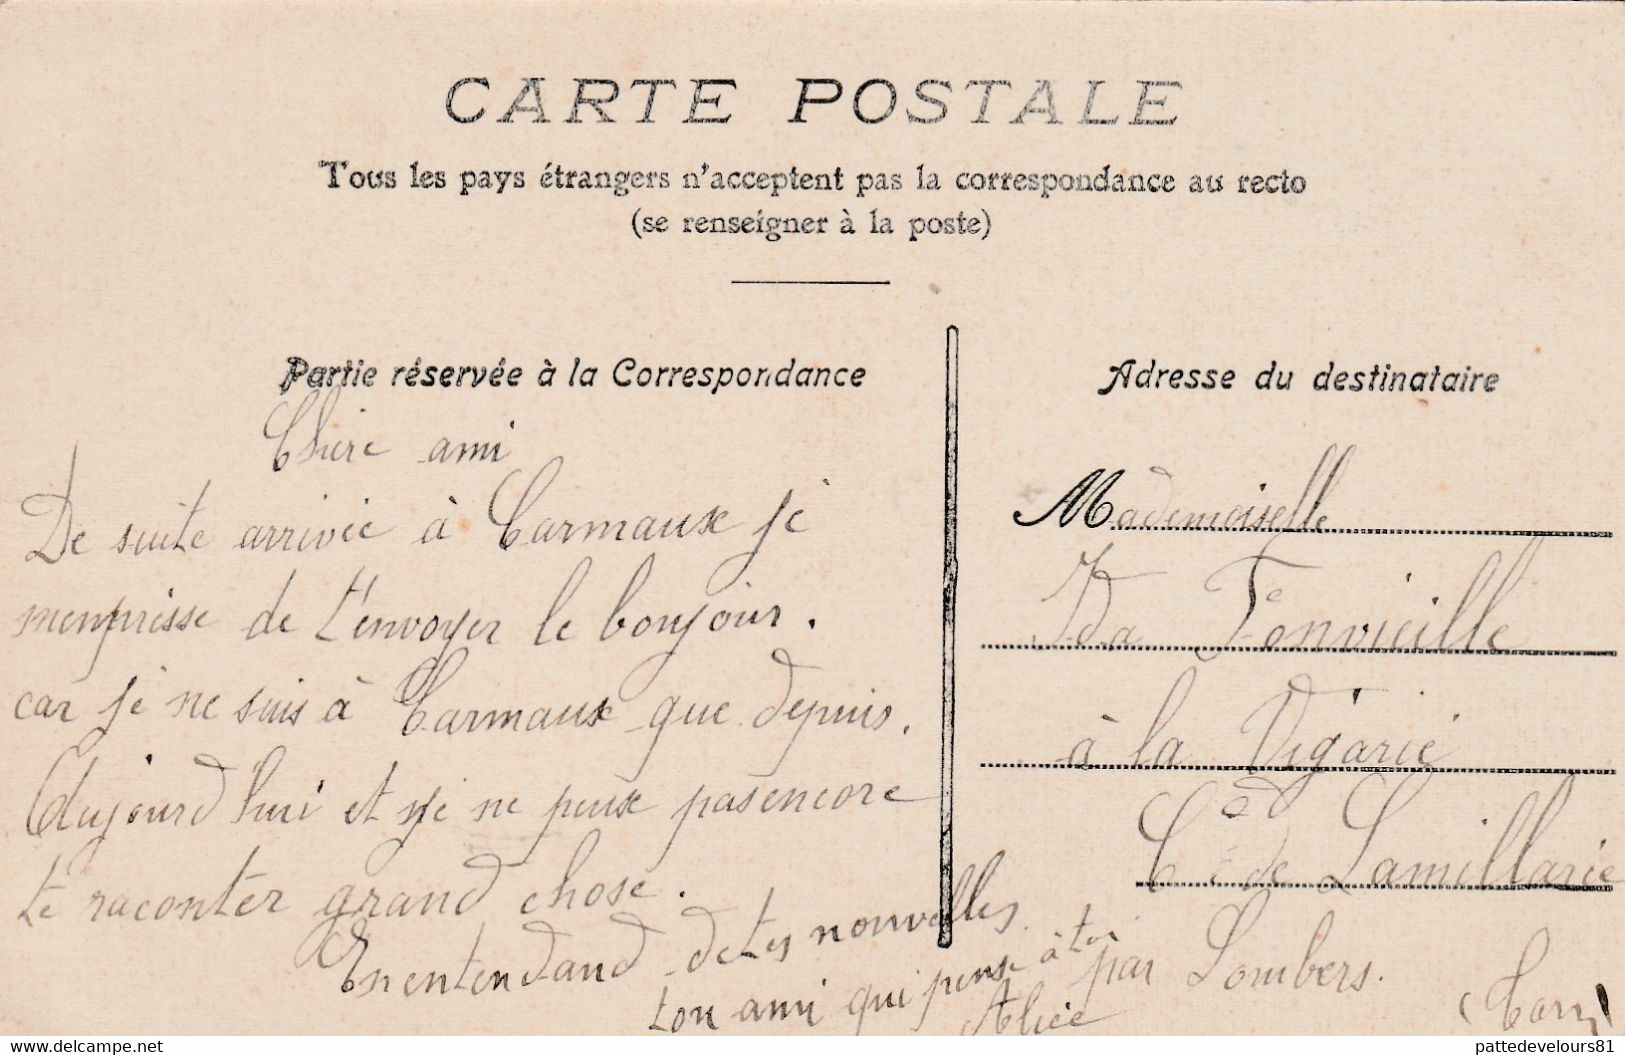 CARTE POSTALE
Tous les pays étrangers n'acceptent pas la correspondance au recto
(se renseigner à la poste)
Partie réservée à la Correspondance
Chère ami
De suite arrivée à Carmaux je
menprisse de t'envoyer le bonjour.
car je ne suis à Carmaux que depuis.
Aujourd'hui et je ne peux pas encore
te raconter grand chose.
Enentendand de tes nouvelles.
ton ami qui pense à toi
Alice
Adresse du destinataire
Mademoiselle
Ida Fonvieille
à la Vigarie
Cne de Lamillarie
par Lombers.
(Tarn)
www.delcampe.net
pattedevelours81